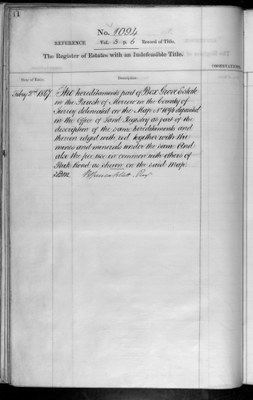 11
No. 1094
REFERENCE Vol. 3 p. 6 Record of Title.
The Register of Estates with an Indefeasible Title.
OBSERVATIONS
Date of Entry. Description.
Feby 2nd 1867 The hereditaments part of Box Grove Estate
in the Parish of Merrow in the County of
Surrey delineated on the Map No 1094 deposited
in the Office of Land Registry as part of the
description of the same hereditaments and
therein edged with red together with the
mines and minerals under the same And
also the fee in common with others of
State Road as shewn on the said Map